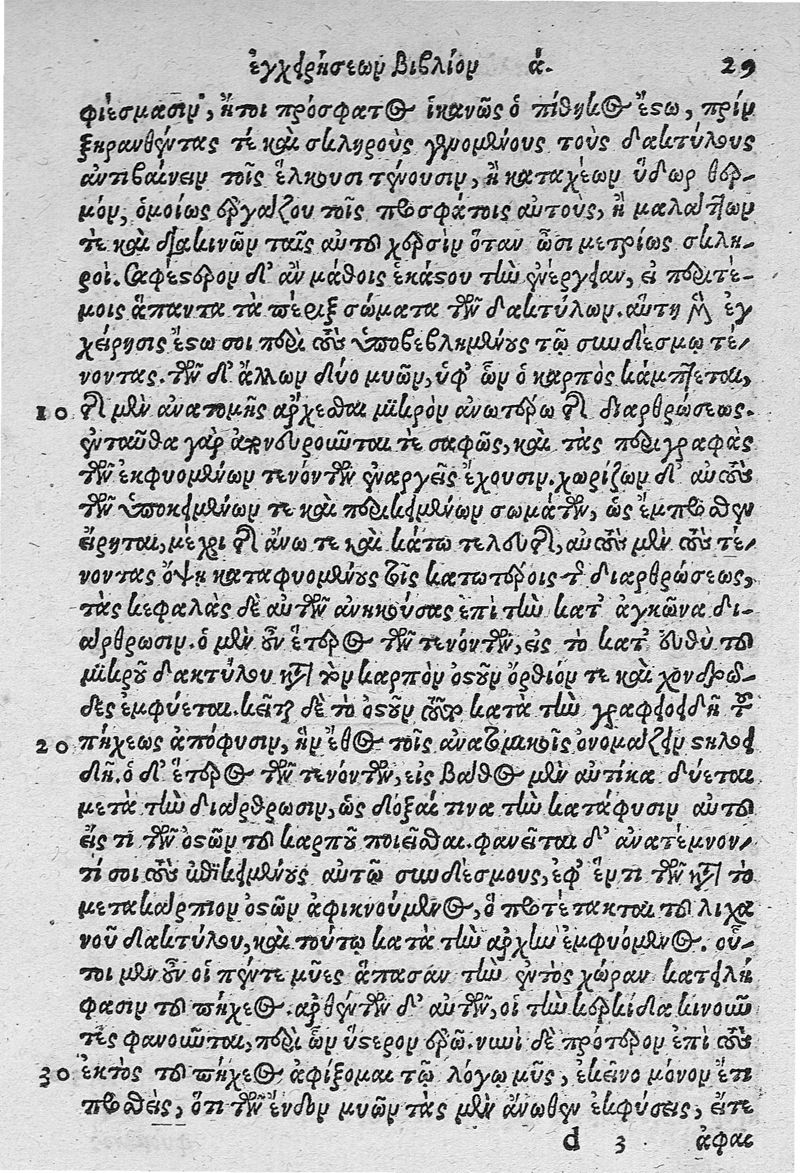 ἐγχειρήσεων βιβλίον ά. 29
φιέσμασιν, ἤτοι πρόσφατος ἱκανῶς ὁ πίθηκος ἔστω, πρὶν
ξηρανθέντας τέ καὶ σκληροὺς γενομένους τοὺς δακτύλους
ἀντιβαίνειν τοῖς ἕλκουσι τένουσιν, ἢ καταχέων ὕδωρ θερ-
μόν, ὁμοίως ἐργάζου τοῖς προσφάτοις αὐτοὺς, ἢ μαλάττων
τε καὶ διακινῶν ταῖς αὑτοῦ χερσὶν ὅταν ὦσι μετρίως σκλη-
ροί. σαφέστερον δ' ἂν μάθοις ἑκάστου τὴν ἐνέργειαν, εἰ περιτέ-
μοις ἅπαντα τὰ πέριξ σώματα τῶν δακτύλων. αὕτη μὲν ἐγ
χείρησις ἔστω σοι περὶ τοὺς ὑποβεβλημένους τῷ συνδέσμῳ τέ-
νοντας. τῶν δ' ἄλλων δύο μυῶν, ὑφ' ὧν ὁ καρπὸς κάμπτεται,
10 τῆς μὲν ἀνατομῆς ἄρχεσθαι μικρὸν ἀνωτέρω τῆς διαρθρώσεως.
ἐνταῦθα γὰρ ἀπονευροῦνταί τε σαφῶς, καὶ τὰς περιγραφὰς
τῶν ἐκφυομένων τενόντων ἐναργεῖς ἔχουσιν. χωρίζων δ' αὐτοὺς
τῶν ὑποκειμένων τε καὶ περικειμένων σωμάτων, ὡς ἔμπροσθεν
εἴρηται, μέχρι τῆς ἄνω τε καὶ κάτω τελευτῆς, αὐτοὺς μὲν τοὺς τέ-
νοντας ὄψῃ καταφυομένους τοῖς κατωτέροις τῆς διαρθρώσεως,
τὰς κεφαλὰς δὲ αὐτῶν ἀνηκούσας ἐπὶ τὴν κατ' ἀγκῶνα δι-
άρθρωσιν. ὁ μὲν οὖν ἕτερος τῶν τενόντων, εἰς τὸ κατ' εὐθὺ τοῦ
μικροῦ δακτύλου κατὰ τὸν καρπὸν ὀστοῦν ὄρθιόν τε καὶ χονδρῶ-
δες ἐμφύεται. κεῖται δὲ τὸ ὀστοῦν τοῦτο κατὰ τὴν γραφοειδῆ τοῦ
20 πήχεως ἀπόφυσιν, ἣν ἔθος τοῖς ἀνατομικοῖς ὀνομάζειν στηλοει
δῆ. ὁ δ' ἕτερος τῶν τενόντων, εἰς βάθος μὲν αὐτίκα δύεται
μετὰ τὴν διάρθρωσιν, ὡς δόξαί τινα τὴν κατάφυσιν αὐτοῦ
εἴς τι τῶν ὀστῶν τοῦ καρποῦ ποιεῖσθαι. φανεῖται δ' ἀνατέμνον-
τί σοι τοὺς ἐπικειμένους αὐτῷ συνδέσμους, ἐφ' ἕν τι τῶν κατὰ τὸ
μετακάρπιον ὀστῶν ἀφικνούμενος, ὃ προτέτακται τοῦ λιχα
νοῦ δακτύλου, καὶ τούτῳ κατὰ τὴν ἀρχὴν ἐμφυόμενος. οὗ-
τοι μὲν οὖν οἱ πέντε μῦες ἅπασαν τὴν ἐντὸς χώραν κατειλή
φασιν τοῦ πήχεος. ἀρθέντων δ' αὐτῶν, οἱ τὴν κερκίδα κινοῦν
τες φανοῦνται, περὶ ὧν ὕστερον ἐρῶ. νυνὶ δὲ πρότερον ἐπὶ τοὺς
30 ἐκτὸς τοῦ πήχεος ἀφίξομαι τῷ λόγῳ μῦς, ἐκεῖνο μόνον ἔτι
προσθεὶς, ὅτι τῶν ἔνδον μυῶν τὰς μὲν ἄνωθεν ἐκφύσεις, εἴτε
d 3 ἀφαι